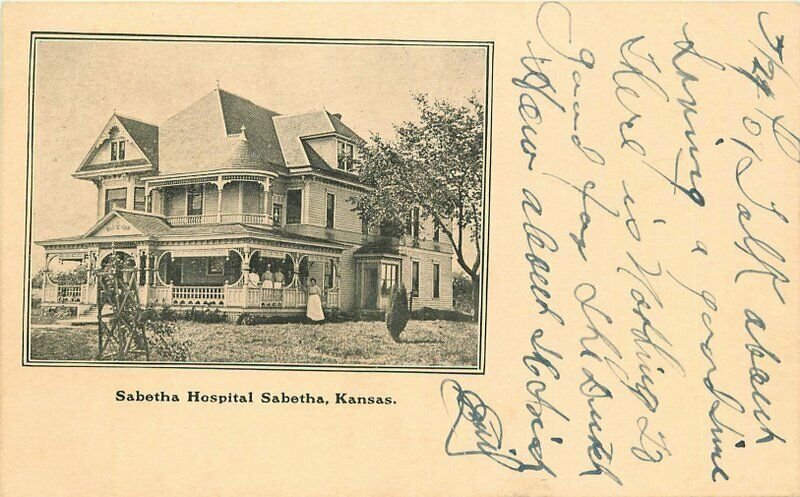 Sabetha Hospital Sabetha, Kansas.
Talk about
Having a good time
There is Nothing To
good for the Dutch
How about it Kid
Emil